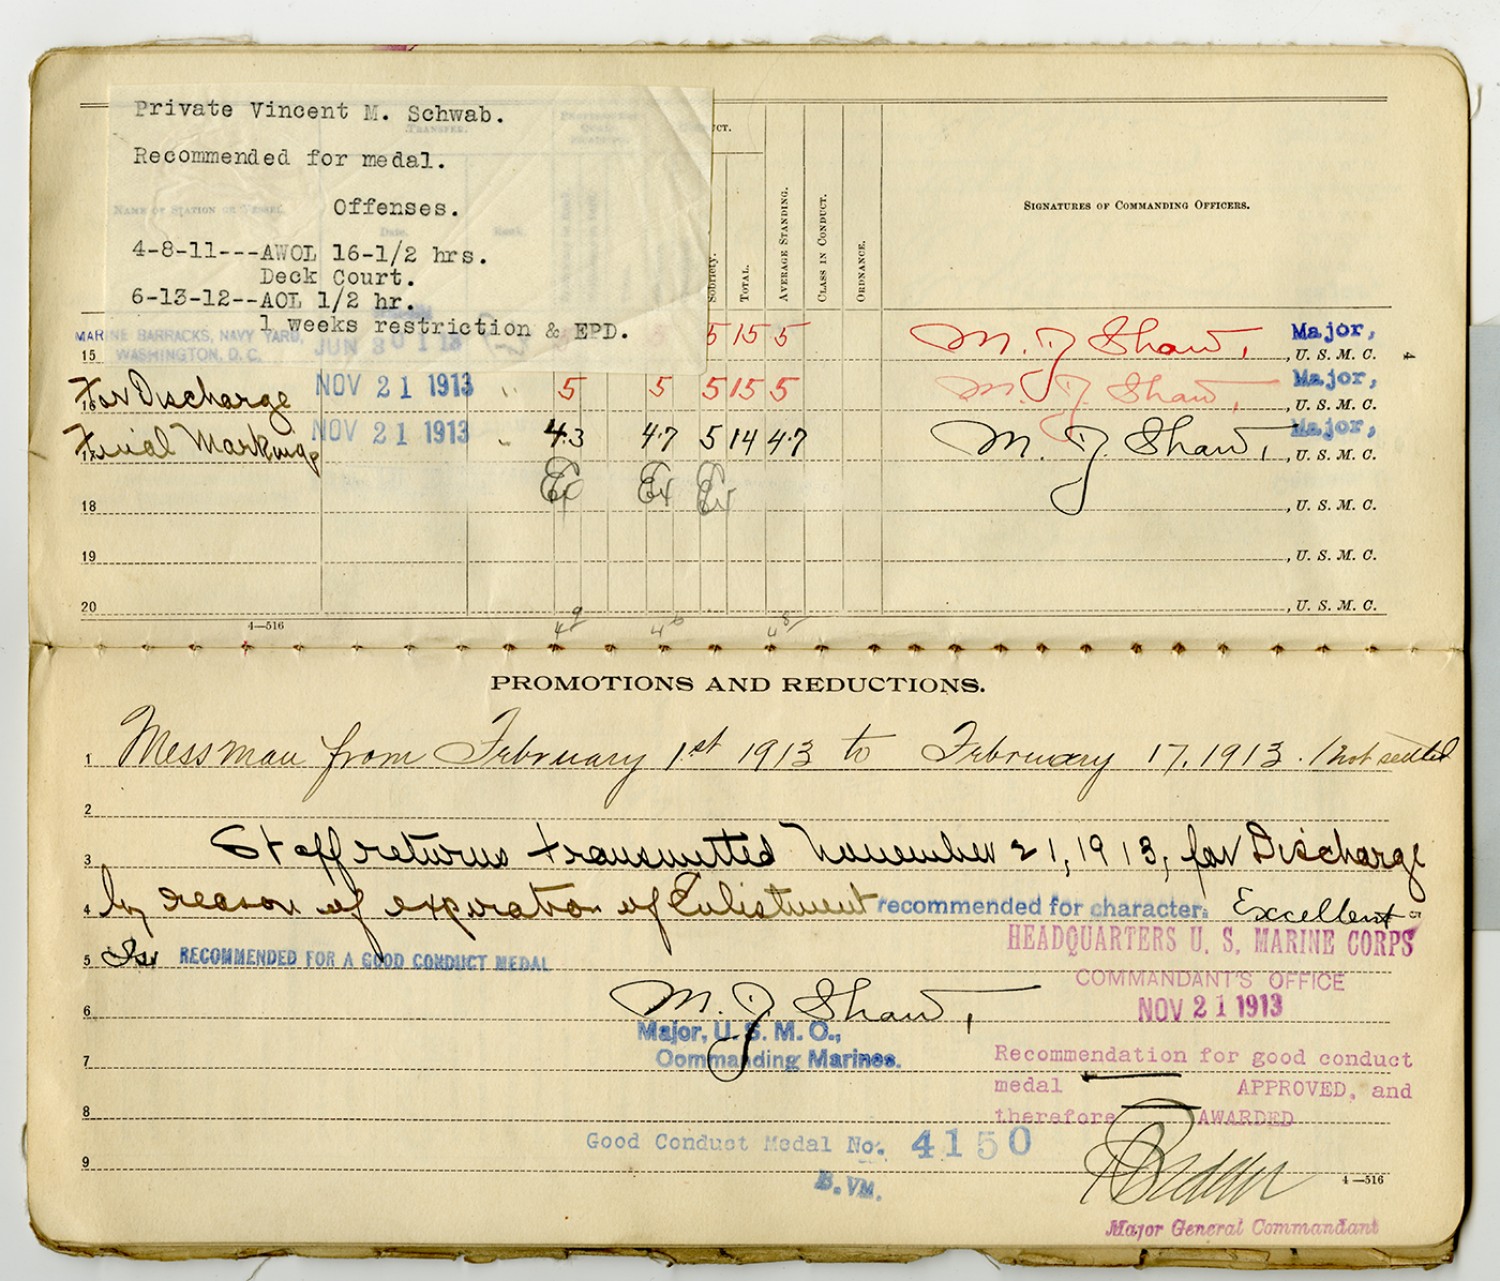 Private Vincent M. Schwab.
Recommended for medal.
Offenses.
4-8-11---AWOL 16-1/2 hrs.
Deck Court.
6-13-12--AOL 1/2 hr.
1 weeks restriction & EPD.
TRANSFER.
NAME OF STATION OR VESSEL.
Date.
Rank.
SOBRIETY.
TOTAL.
AVERAGE STANDING.
CLASS IN CONDUCT.
ORDNANCE.
SIGNATURES OF COMMANDING OFFICERS.
MARINE BARRACKS, NAVY YARD,
WASHINGTON, D. C.
15 JUN 30 1913 5 15 5 M. J. Shaw, Major, U. S. M. C.
16 For Discharge NOV 21 1913 " 5 5 5 15 5 M. J. Shaw, Major, U. S. M. C.
17 Final Marking NOV 21 1913 " 4.3 4.7 5 14 4.7 M. J. Shaw, Major, U. S. M. C.
Ex Ex Ex
18 , U. S. M. C.
19 , U. S. M. C.
20 , U. S. M. C.
4—516
PROMOTIONS AND REDUCTIONS.
1 Messman from February 1st 1913 to February 17, 1913. / not settled
2
3 Staff returns transmitted November 21, 1913, for Discharge
4 by reason of expiration of Enlistment recommended for character: Excellent
5 Is RECOMMENDED FOR A GOOD CONDUCT MEDAL
HEADQUARTERS U. S. MARINE CORPS
COMMANDANT'S OFFICE
NOV 21 1913
6 M. J. Shaw,
Major, U. S. M. C.,
7 Commanding Marines.
Recommendation for good conduct
medal APPROVED, and
8 therefore AWARDED
Good Conduct Medal No. 4150
9
B. VM.
4—516
Major General Commandant